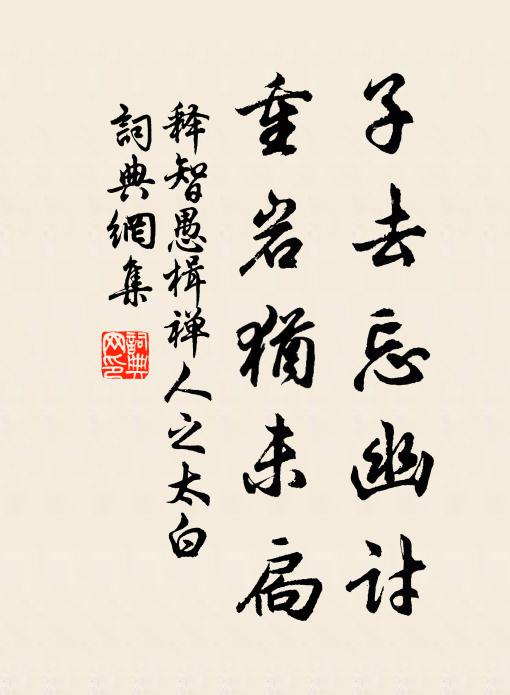 子去忘幽討
重岩猶未扃
释智愚楫禅人之太白
詞典網集
詞典
网印